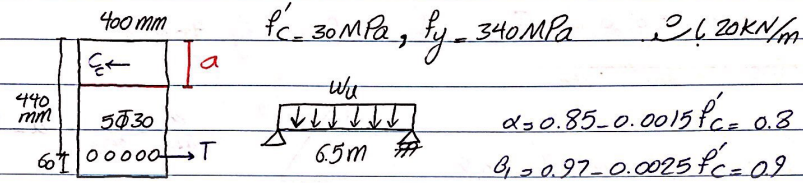 400 mm
f'c = 30 MPa, fy = 340 MPa
20 KN/m
Cc ←
a
440 mm
5Φ30
60
T
Wu
6.5m
α = 0.85 - 0.0015 f'c = 0.8
β1 = 0.97 - 0.0025 f'c = 0.9